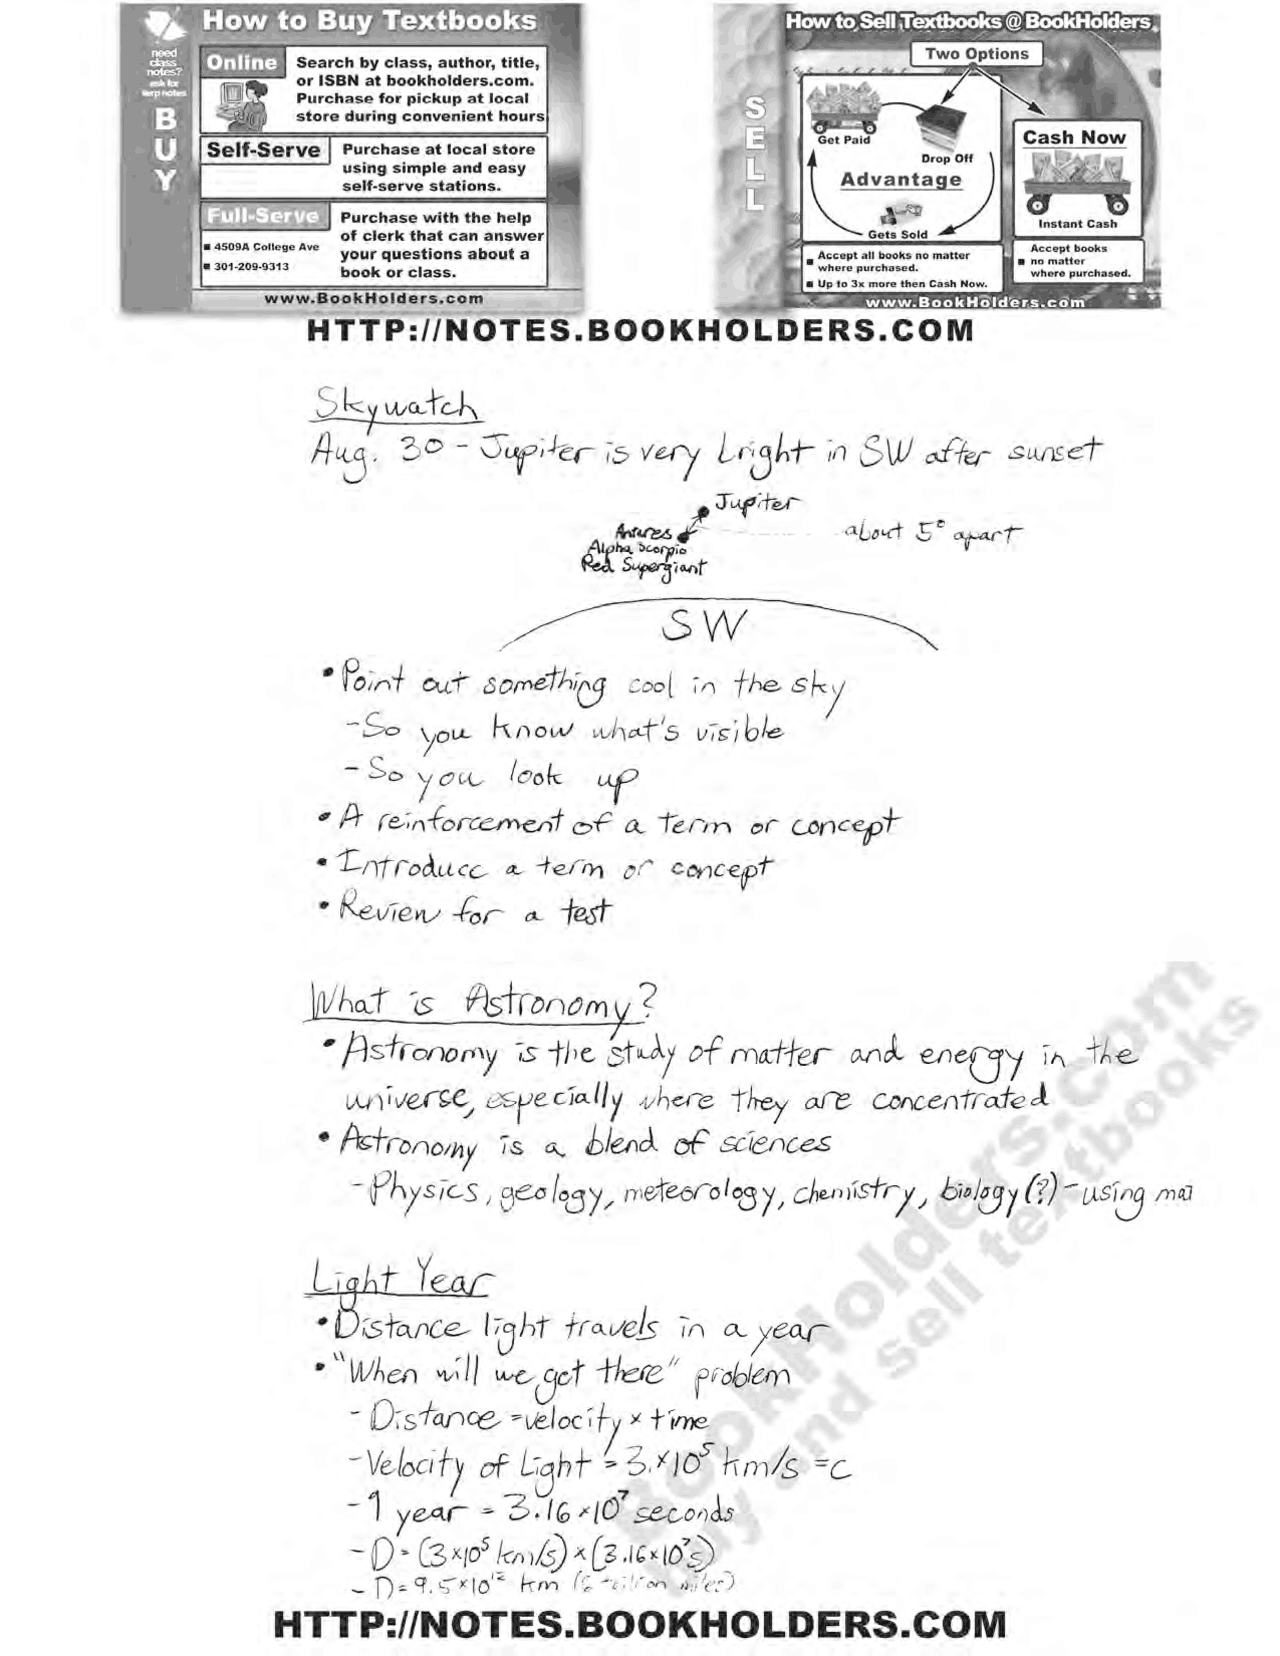 How to Buy Textbooks
need
class
notes?
ask for
terp notes
BUY
Online
Search by class, author, title,
or ISBN at bookholders.com.
Purchase for pickup at local
store during convenient hours
Self-Serve
Purchase at local store
using simple and easy
self-serve stations.
Full-Serve
■ 4509A College Ave
■ 301-209-9313
Purchase with the help
of clerk that can answer
your questions about a
book or class.
www.BookHolders.com
How to Sell Textbooks @ BookHolders
SELL
Two Options
Get Paid
Drop Off
Advantage
Gets Sold
■ Accept all books no matter
where purchased.
■ Up to 3x more then Cash Now.
Cash Now
Instant Cash
Accept books
■ no matter
where purchased.
www.BookHolders.com
HTTP://NOTES.BOOKHOLDERS.COM
Skywatch
Aug. 30 - Jupiter is very bright in SW after sunset
Jupiter
Antares
about 5° apart
Alpha Scorpio
Red Supergiant
SW
• Point out something cool in the sky
- So you know what's visible
- So you look up
• A reinforcement of a term or concept
• Introduce a term or concept
• Review for a test
What is Astronomy?
• Astronomy is the study of matter and energy in the
universe, especially where they are concentrated
• Astronomy is a blend of sciences
- Physics, geology, meteorology, chemistry, biology (?) - using mat
Light Year
• Distance light travels in a year
• "When will we get there" problem
- Distance = velocity × time
- Velocity of Light = 3.×10⁵ km/s = c
- 1 year = 3.16×10⁷ seconds
- D = (3×10⁵ km/s) × (3.16×10⁷s)
- D = 9.5×10¹² km (6 trillion miles)
BookHolders.com
buy and sell textbooks
HTTP://NOTES.BOOKHOLDERS.COM